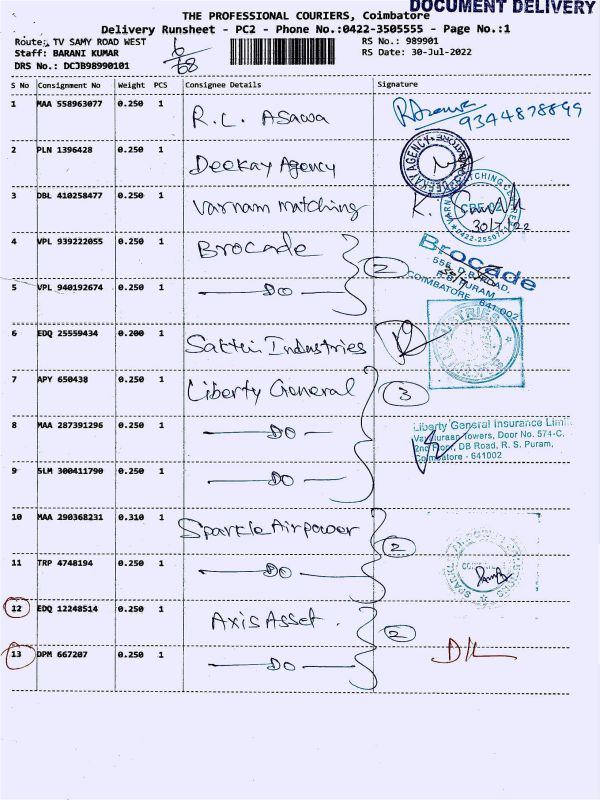 DOCUMENT DELIVERY
THE PROFESSIONAL COURIERS, Coimbatore
Delivery Runsheet - PC2 - Phone No.:0422-3505555 - Page No.:1
Route: TV SAMY ROAD WEST
RS No.: 989901
Staff: BARANI KUMAR
RS Date: 30-Jul-2022
DRS No.: DCJB98990101
6/68
S No Consignment No Weight PCS Consignee Details Signature
1 MAA 558963077 0.250 1 R.L. Asawa
9344878899
2 PLN 1396428 0.250 1 Deekay Agency
DEEKAY AGENCY
3 DBL 410258477 0.250 1 Varnam matching
CBE-02
30/7/22
4 VPL 939222055 0.250 1 Brocade
2
Brocade
COIMBATORE - 641 002
5 VPL 940192674 0.250 1 DO
6 EDQ 25559434 0.200 1 Sakthi Industries
7 APY 650438 0.250 1 Liberty General
3
8 MAA 287391296 0.250 1 DO
Liberty General Insurance Limi
Towers, Door No. 574-C,
2nd Floor, DB Road, R. S. Puram,
Coimbatore - 641002
9 SLM 300411790 0.250 1 DO
10 MAA 290368231 0.310 1 Sparkle Airpower
2
11 TRP 4748194 0.250 1 DO
12 EDQ 12248514 0.250 1 Axis Asset.
2
13 DPM 667207 0.250 1 DO